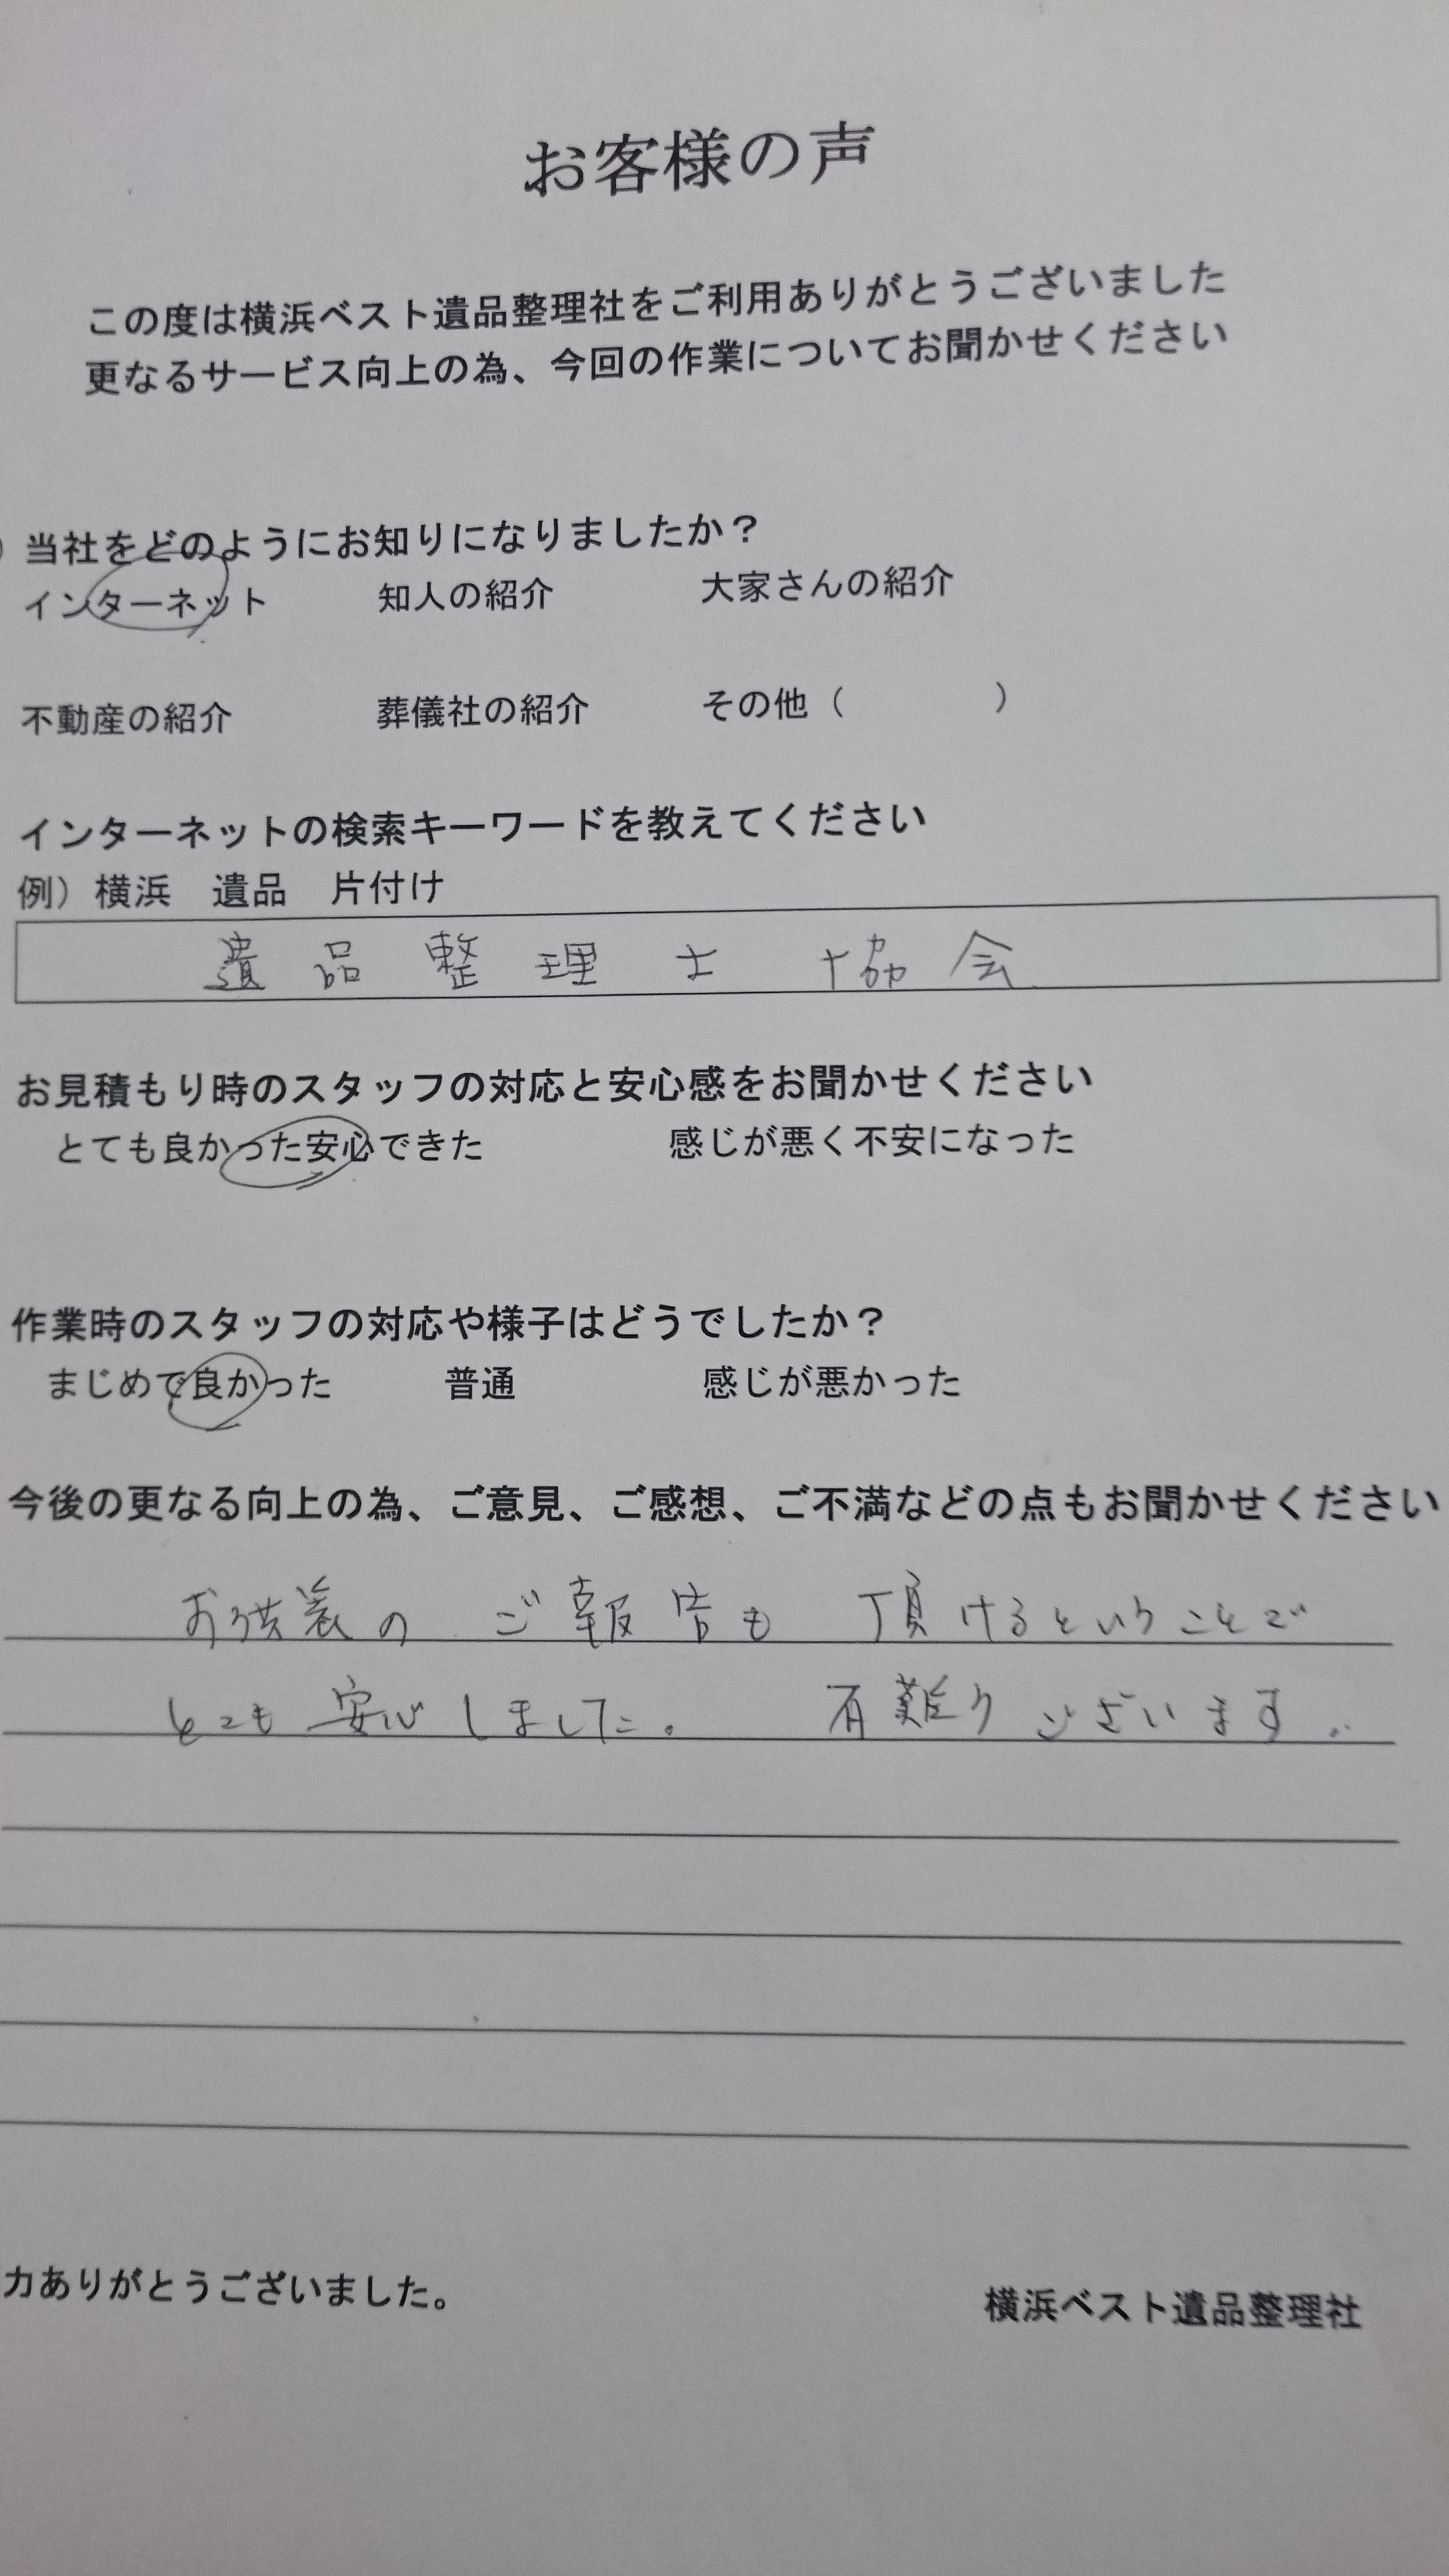 お客様の声
この度は横浜ベスト遺品整理社をご利用ありがとうございました
更なるサービス向上の為、今回の作業についてお聞かせください
）当社をどのようにお知りになりましたか？
インターネット　知人の紹介　大家さんの紹介
不動産の紹介　葬儀社の紹介　その他（　　　）
インターネットの検索キーワードを教えてください
例）横浜　遺品　片付け
遺品整理士　協会
お見積もり時のスタッフの対応と安心感をお聞かせください
とても良かった安心できた　感じが悪く不安になった
作業時のスタッフの対応や様子はどうでしたか？
まじめで良かった　普通　感じが悪かった
今後の更なる向上の為、ご意見、ご感想、ご不満などの点もお聞かせください
お供養の　ご報告も　頂けるということで
とても安心しました。　有難うございます。
力ありがとうございました。
横浜ベスト遺品整理社